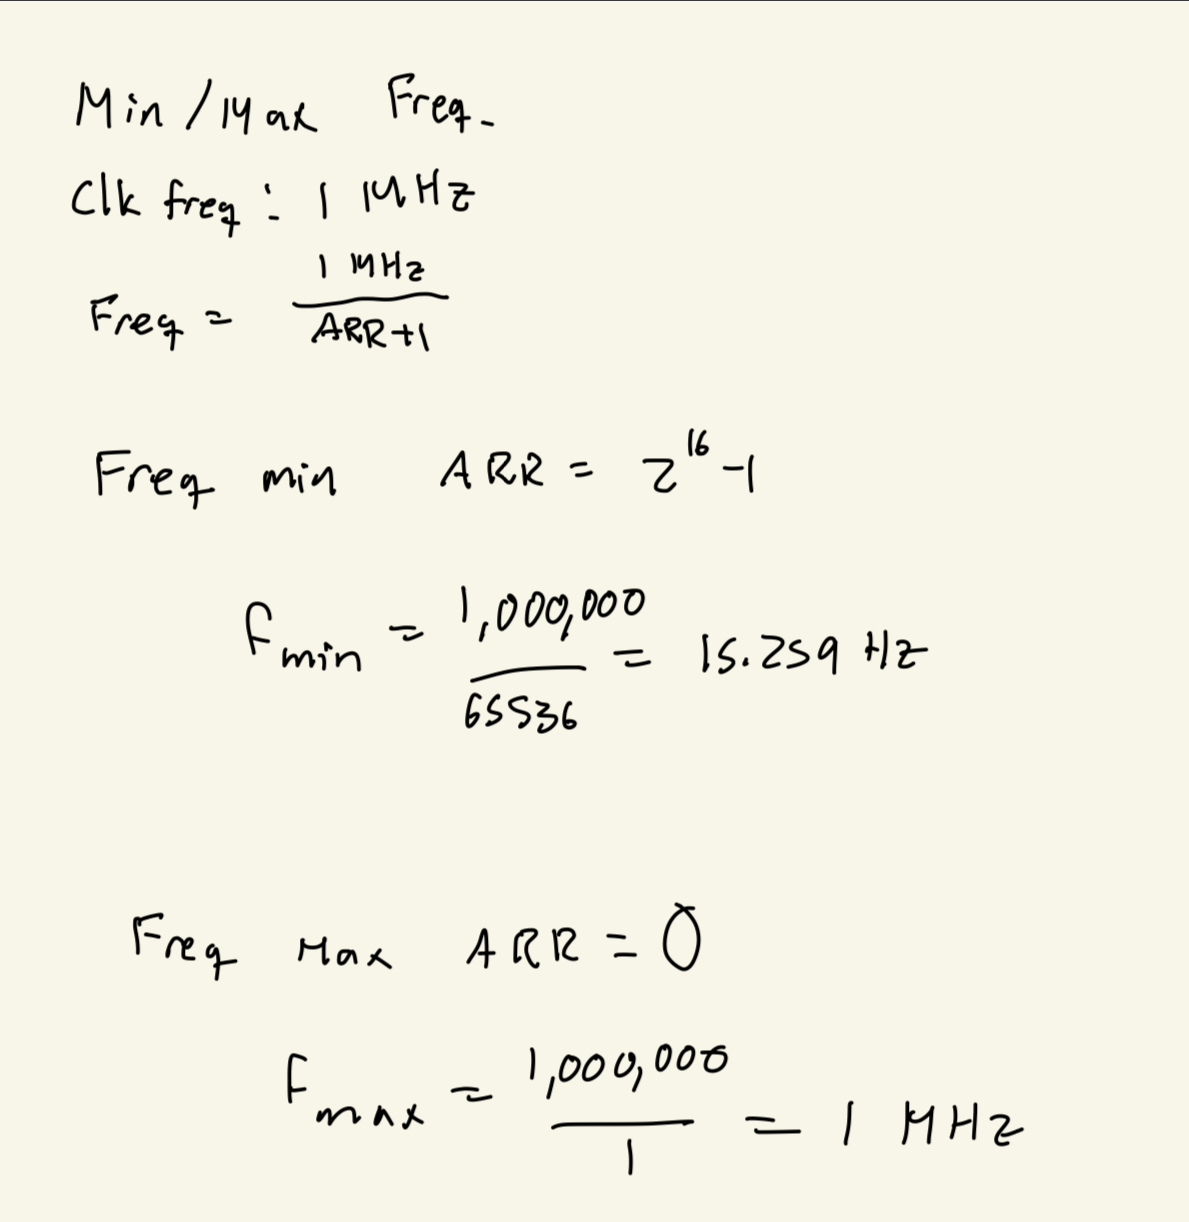 Min / Max Freq.
Clk freq : 1 MHz
Freq = 1 MHz / ARR+1
Freq min ARR = 2^16 -1
fmin = 1,000,000 / 65536 = 15.259 Hz
Freq Max ARR = 0
Fmax = 1,000,000 / 1 = 1 MHz